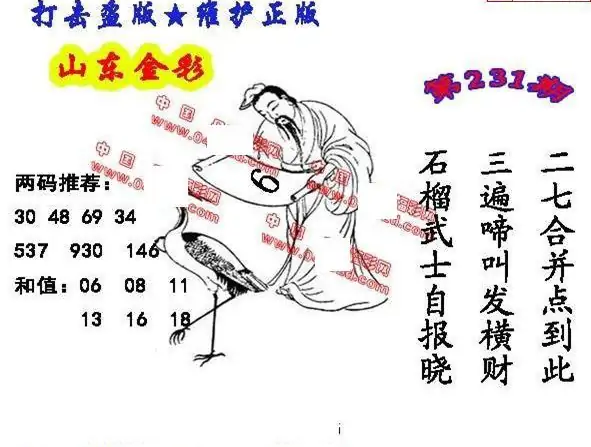 打击盗版★维护正版
山东金彩
第231期
两码推荐：
30 48 69 34
537 930 146
和值：06 08 11
13 16 18
6
二七合并点到此
三遍啼叫发横财
石榴武士自报晓
中国
www.0
中国
www.0
彩网
d.com
彩网
d.com
i